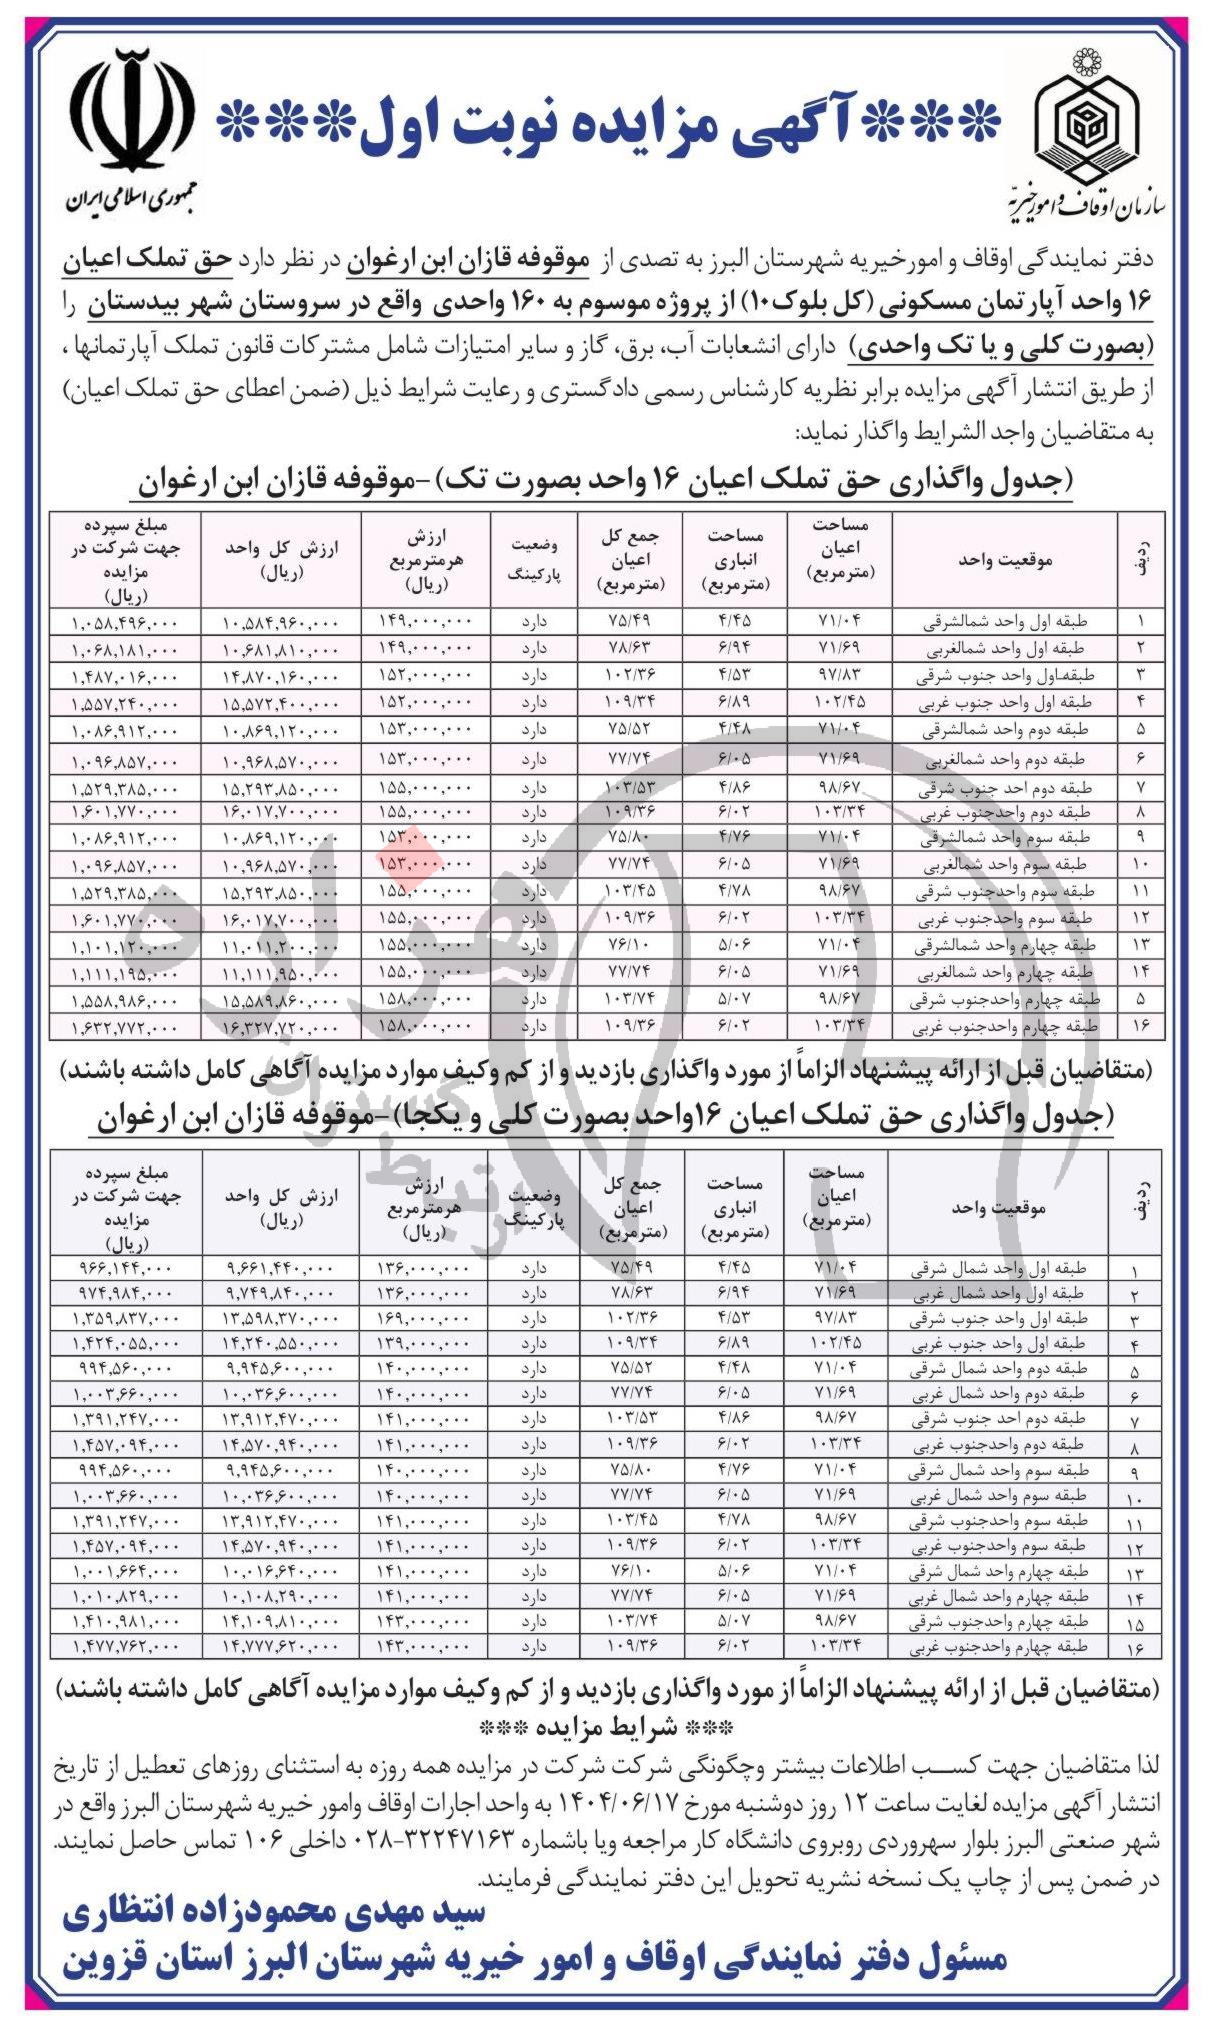 جمهوری اسلامی ایران
***آگهی مزایده نوبت اول***
سازمان اوقاف و امور خیریه
دفتر نمایندگی اوقاف و امورخیریه شهرستان البرز به تصدی از موقوفه قازان ابن ارغوان در نظر دارد حق تملک اعیان
۱۶ واحد آپارتمان مسکونی (کل بلوک۱۰) از پروژه موسوم به ۱۶۰ واحدی واقع در سروستان شهر بیدستان را
(بصورت کلی و یا تک واحدی) دارای انشعابات آب، برق، گاز و سایر امتیازات شامل مشترکات قانون تملک آپارتمانها ،
از طریق انتشار آگهی مزایده برابر نظریه کارشناس رسمی دادگستری و رعایت شرایط ذیل (ضمن اعطای حق تملک اعیان)
به متقاضیان واجد الشرایط واگذار نماید:
(جدول واگذاری حق تملک اعیان ۱۶ واحد بصورت تک) -موقوفه قازان ابن ارغوان
ردیف | موقعیت واحد | مساحت اعیان (مترمربع) | مساحت انباری (مترمربع) | جمع کل اعیان (مترمربع) | وضعیت پارکینگ | ارزش هرمترمربع (ریال) | ارزش کل واحد (ریال) | مبلغ سپرده جهت شرکت در مزایده (ریال)
۱ | طبقه اول واحد شمالشرقی | ۷۱/۰۴ | ۴/۴۵ | ۷۵/۴۹ | دارد | ۱۴۹,۰۰۰,۰۰۰ | ۱۰,۵۸۴,۹۶۰,۰۰۰ | ۱,۰۵۸,۴۹۶,۰۰۰
۲ | طبقه اول واحد شمالغربی | ۷۱/۶۹ | ۶/۹۴ | ۷۸/۶۳ | دارد | ۱۴۹,۰۰۰,۰۰۰ | ۱۰,۶۸۱,۸۱۰,۰۰۰ | ۱,۰۶۸,۱۸۱,۰۰۰
۳ | طبقه‌اول واحد جنوب شرقی | ۹۷/۸۳ | ۴/۵۳ | ۱۰۲/۳۶ | دارد | ۱۵۲,۰۰۰,۰۰۰ | ۱۴,۸۷۰,۱۶۰,۰۰۰ | ۱,۴۸۷,۰۱۶,۰۰۰
۴ | طبقه اول واحد جنوب غربی | ۱۰۲/۴۵ | ۶/۸۹ | ۱۰۹/۳۴ | دارد | ۱۵۲,۰۰۰,۰۰۰ | ۱۵,۵۷۲,۴۰۰,۰۰۰ | ۱,۵۵۷,۲۴۰,۰۰۰
۵ | طبقه دوم واحد شمالشرقی | ۷۱/۰۴ | ۴/۴۸ | ۷۵/۵۲ | دارد | ۱۵۳,۰۰۰,۰۰۰ | ۱۰,۸۶۹,۱۲۰,۰۰۰ | ۱,۰۸۶,۹۱۲,۰۰۰
۶ | طبقه دوم واحد شمالغربی | ۷۱/۶۹ | ۶/۰۵ | ۷۷/۷۴ | دارد | ۱۵۳,۰۰۰,۰۰۰ | ۱۰,۹۶۸,۵۷۰,۰۰۰ | ۱,۰۹۶,۸۵۷,۰۰۰
۷ | طبقه دوم احد جنوب شرقی | ۹۸/۶۷ | ۴/۸۶ | ۱۰۳/۵۳ | دارد | ۱۵۵,۰۰۰,۰۰۰ | ۱۵,۲۹۳,۸۵۰,۰۰۰ | ۱,۵۲۹,۳۸۵,۰۰۰
۸ | طبقه دوم واحدجنوب غربی | ۱۰۳/۳۴ | ۶/۰۲ | ۱۰۹/۳۶ | دارد | ۱۵۵,۰۰۰,۰۰۰ | ۱۶,۰۱۷,۷۰۰,۰۰۰ | ۱,۶۰۱,۷۷۰,۰۰۰
۹ | طبقه سوم واحد شمالشرقی | ۷۱/۰۴ | ۴/۷۶ | ۷۵/۸۰ | دارد | ۱۵۳,۰۰۰,۰۰۰ | ۱۰,۸۶۹,۱۲۰,۰۰۰ | ۱,۰۸۶,۹۱۲,۰۰۰
۱۰ | طبقه سوم واحد شمالغربی | ۷۱/۶۹ | ۶/۰۵ | ۷۷/۷۴ | دارد | ۱۵۳,۰۰۰,۰۰۰ | ۱۰,۹۶۸,۵۷۰,۰۰۰ | ۱,۰۹۶,۸۵۷,۰۰۰
۱۱ | طبقه سوم واحدجنوب شرقی | ۹۸/۶۷ | ۴/۷۸ | ۱۰۳/۴۵ | دارد | ۱۵۵,۰۰۰,۰۰۰ | ۱۵,۲۹۳,۸۵۰,۰۰۰ | ۱,۵۲۹,۳۸۵,۰۰۰
۱۲ | طبقه سوم واحدجنوب غربی | ۱۰۳/۳۴ | ۶/۰۲ | ۱۰۹/۳۶ | دارد | ۱۵۵,۰۰۰,۰۰۰ | ۱۶,۰۱۷,۷۰۰,۰۰۰ | ۱,۶۰۱,۷۷۰,۰۰۰
۱۳ | طبقه چهارم واحد شمالشرقی | ۷۱/۰۴ | ۵/۰۶ | ۷۶/۱۰ | دارد | ۱۵۵,۰۰۰,۰۰۰ | ۱۱,۰۱۱,۲۰۰,۰۰۰ | ۱,۱۰۱,۱۲۰,۰۰۰
۱۴ | طبقه چهارم واحد شمالغربی | ۷۱/۶۹ | ۶/۰۵ | ۷۷/۷۴ | دارد | ۱۵۵,۰۰۰,۰۰۰ | ۱۱,۱۱۱,۹۵۰,۰۰۰ | ۱,۱۱۱,۱۹۵,۰۰۰
۵ | طبقه چهارم واحدجنوب شرقی | ۹۸/۶۷ | ۵/۰۷ | ۱۰۳/۷۴ | دارد | ۱۵۸,۰۰۰,۰۰۰ | ۱۵,۵۸۹,۸۶۰,۰۰۰ | ۱,۵۵۸,۹۸۶,۰۰۰
۱۶ | طبقه چهارم واحدجنوب غربی | ۱۰۳/۳۴ | ۶/۰۲ | ۱۰۹/۳۶ | دارد | ۱۵۸,۰۰۰,۰۰۰ | ۱۶,۳۲۷,۷۲۰,۰۰۰ | ۱,۶۳۲,۷۷۲,۰۰۰
(متقاضیان قبل از ارائه پیشنهاد الزاماً از مورد واگذاری بازدید و از کم وکیف موارد مزایده آگاهی کامل داشته باشند)
(جدول واگذاری حق تملک اعیان ۱۶واحد بصورت کلی و یکجا) -موقوفه قازان ابن ارغوان
ردیف | موقعیت واحد | مساحت اعیان (مترمربع) | مساحت انباری (مترمربع) | جمع کل اعیان (مترمربع) | وضعیت پارکینگ | ارزش هرمترمربع (ریال) | ارزش کل واحد (ریال) | مبلغ سپرده جهت شرکت در مزایده (ریال)
۱ | طبقه اول واحد شمال شرقی | ۷۱/۰۴ | ۴/۴۵ | ۷۵/۴۹ | دارد | ۱۳۶,۰۰۰,۰۰۰ | ۹,۶۶۱,۴۴۰,۰۰۰ | ۹۶۶,۱۴۴,۰۰۰
۲ | طبقه اول واحد شمال غربی | ۷۱/۶۹ | ۶/۹۴ | ۷۸/۶۳ | دارد | ۱۳۶,۰۰۰,۰۰۰ | ۹,۷۴۹,۸۴۰,۰۰۰ | ۹۷۴,۹۸۴,۰۰۰
۳ | طبقه اول واحد جنوب شرقی | ۹۷/۸۳ | ۴/۵۳ | ۱۰۲/۳۶ | دارد | ۱۶۹,۰۰۰,۰۰۰ | ۱۳,۵۹۸,۳۷۰,۰۰۰ | ۱,۳۵۹,۸۳۷,۰۰۰
۴ | طبقه اول واحد جنوب غربی | ۱۰۲/۴۵ | ۶/۸۹ | ۱۰۹/۳۴ | دارد | ۱۳۹,۰۰۰,۰۰۰ | ۱۴,۲۴۰,۵۵۰,۰۰۰ | ۱,۴۲۴,۰۵۵,۰۰۰
۵ | طبقه دوم واحد شمال شرقی | ۷۱/۰۴ | ۴/۴۸ | ۷۵/۵۲ | دارد | ۱۴۰,۰۰۰,۰۰۰ | ۹,۹۴۵,۶۰۰,۰۰۰ | ۹۹۴,۵۶۰,۰۰۰
۶ | طبقه دوم واحد شمال غربی | ۷۱/۶۹ | ۶/۰۵ | ۷۷/۷۴ | دارد | ۱۴۰,۰۰۰,۰۰۰ | ۱۰,۰۳۶,۶۰۰,۰۰۰ | ۱,۰۰۳,۶۶۰,۰۰۰
۷ | طبقه دوم احد جنوب شرقی | ۹۸/۶۷ | ۴/۸۶ | ۱۰۳/۵۳ | دارد | ۱۴۱,۰۰۰,۰۰۰ | ۱۳,۹۱۲,۴۷۰,۰۰۰ | ۱,۳۹۱,۲۴۷,۰۰۰
۸ | طبقه دوم واحدجنوب غربی | ۱۰۳/۳۴ | ۶/۰۲ | ۱۰۹/۳۶ | دارد | ۱۴۱,۰۰۰,۰۰۰ | ۱۴,۵۷۰,۹۴۰,۰۰۰ | ۱,۴۵۷,۰۹۴,۰۰۰
۹ | طبقه سوم واحد شمال شرقی | ۷۱/۰۴ | ۴/۷۶ | ۷۵/۸۰ | دارد | ۱۴۰,۰۰۰,۰۰۰ | ۹,۹۴۵,۶۰۰,۰۰۰ | ۹۹۴,۵۶۰,۰۰۰
۱۰ | طبقه سوم واحد شمال غربی | ۷۱/۶۹ | ۶/۰۵ | ۷۷/۷۴ | دارد | ۱۴۰,۰۰۰,۰۰۰ | ۱۰,۰۳۶,۶۰۰,۰۰۰ | ۱,۰۰۳,۶۶۰,۰۰۰
۱۱ | طبقه سوم واحدجنوب شرقی | ۹۸/۶۷ | ۴/۷۸ | ۱۰۳/۴۵ | دارد | ۱۴۱,۰۰۰,۰۰۰ | ۱۳,۹۱۲,۴۷۰,۰۰۰ | ۱,۳۹۱,۲۴۷,۰۰۰
۱۲ | طبقه سوم واحدجنوب غربی | ۱۰۳/۳۴ | ۶/۰۲ | ۱۰۹/۳۶ | دارد | ۱۴۱,۰۰۰,۰۰۰ | ۱۴,۵۷۰,۹۴۰,۰۰۰ | ۱,۴۵۷,۰۹۴,۰۰۰
۱۳ | طبقه چهارم واحد شمال شرقی | ۷۱/۰۴ | ۵/۰۶ | ۷۶/۱۰ | دارد | ۱۴۱,۰۰۰,۰۰۰ | ۱۰,۰۱۶,۶۴۰,۰۰۰ | ۱,۰۰۱,۶۶۴,۰۰۰
۱۴ | طبقه چهارم واحد شمال غربی | ۷۱/۶۹ | ۶/۰۵ | ۷۷/۷۴ | دارد | ۱۴۱,۰۰۰,۰۰۰ | ۱۰,۱۰۸,۲۹۰,۰۰۰ | ۱,۰۱۰,۸۲۹,۰۰۰
۱۵ | طبقه چهارم واحدجنوب شرقی | ۹۸/۶۷ | ۵/۰۷ | ۱۰۳/۷۴ | دارد | ۱۴۳,۰۰۰,۰۰۰ | ۱۴,۱۰۹,۸۱۰,۰۰۰ | ۱,۴۱۰,۹۸۱,۰۰۰
۱۶ | طبقه چهارم واحدجنوب غربی | ۱۰۳/۳۴ | ۶/۰۲ | ۱۰۹/۳۶ | دارد | ۱۴۳,۰۰۰,۰۰۰ | ۱۴,۷۷۷,۶۲۰,۰۰۰ | ۱,۴۷۷,۷۶۲,۰۰۰
(متقاضیان قبل از ارائه پیشنهاد الزاماً از مورد واگذاری بازدید و از کم وکیف موارد مزایده آگاهی کامل داشته باشند)
*** شرایط مزایده ***
لذا متقاضیان جهت کسب اطلاعات بیشتر وچگونگی شرکت شرکت در مزایده همه روزه به استثنای روزهای تعطیل از تاریخ
انتشار آگهی مزایده لغایت ساعت ۱۲ روز دوشنبه مورخ ۱۴۰۴/۰۶/۱۷ به واحد اجارات اوقاف وامور خیریه شهرستان البرز واقع در
شهر صنعتی البرز بلوار سهروردی روبروی دانشگاه کار مراجعه ویا باشماره ۳۲۲۴۷۱۶۳-۰۲۸ داخلی ۱۰۶ تماس حاصل نمایند.
در ضمن پس از چاپ یک نسخه نشریه تحویل این دفتر نمایندگی فرمایند.
سید مهدی محمودزاده انتظاری
مسئول دفتر نمایندگی اوقاف و امور خیریه شهرستان البرز استان قزوین
هزاره